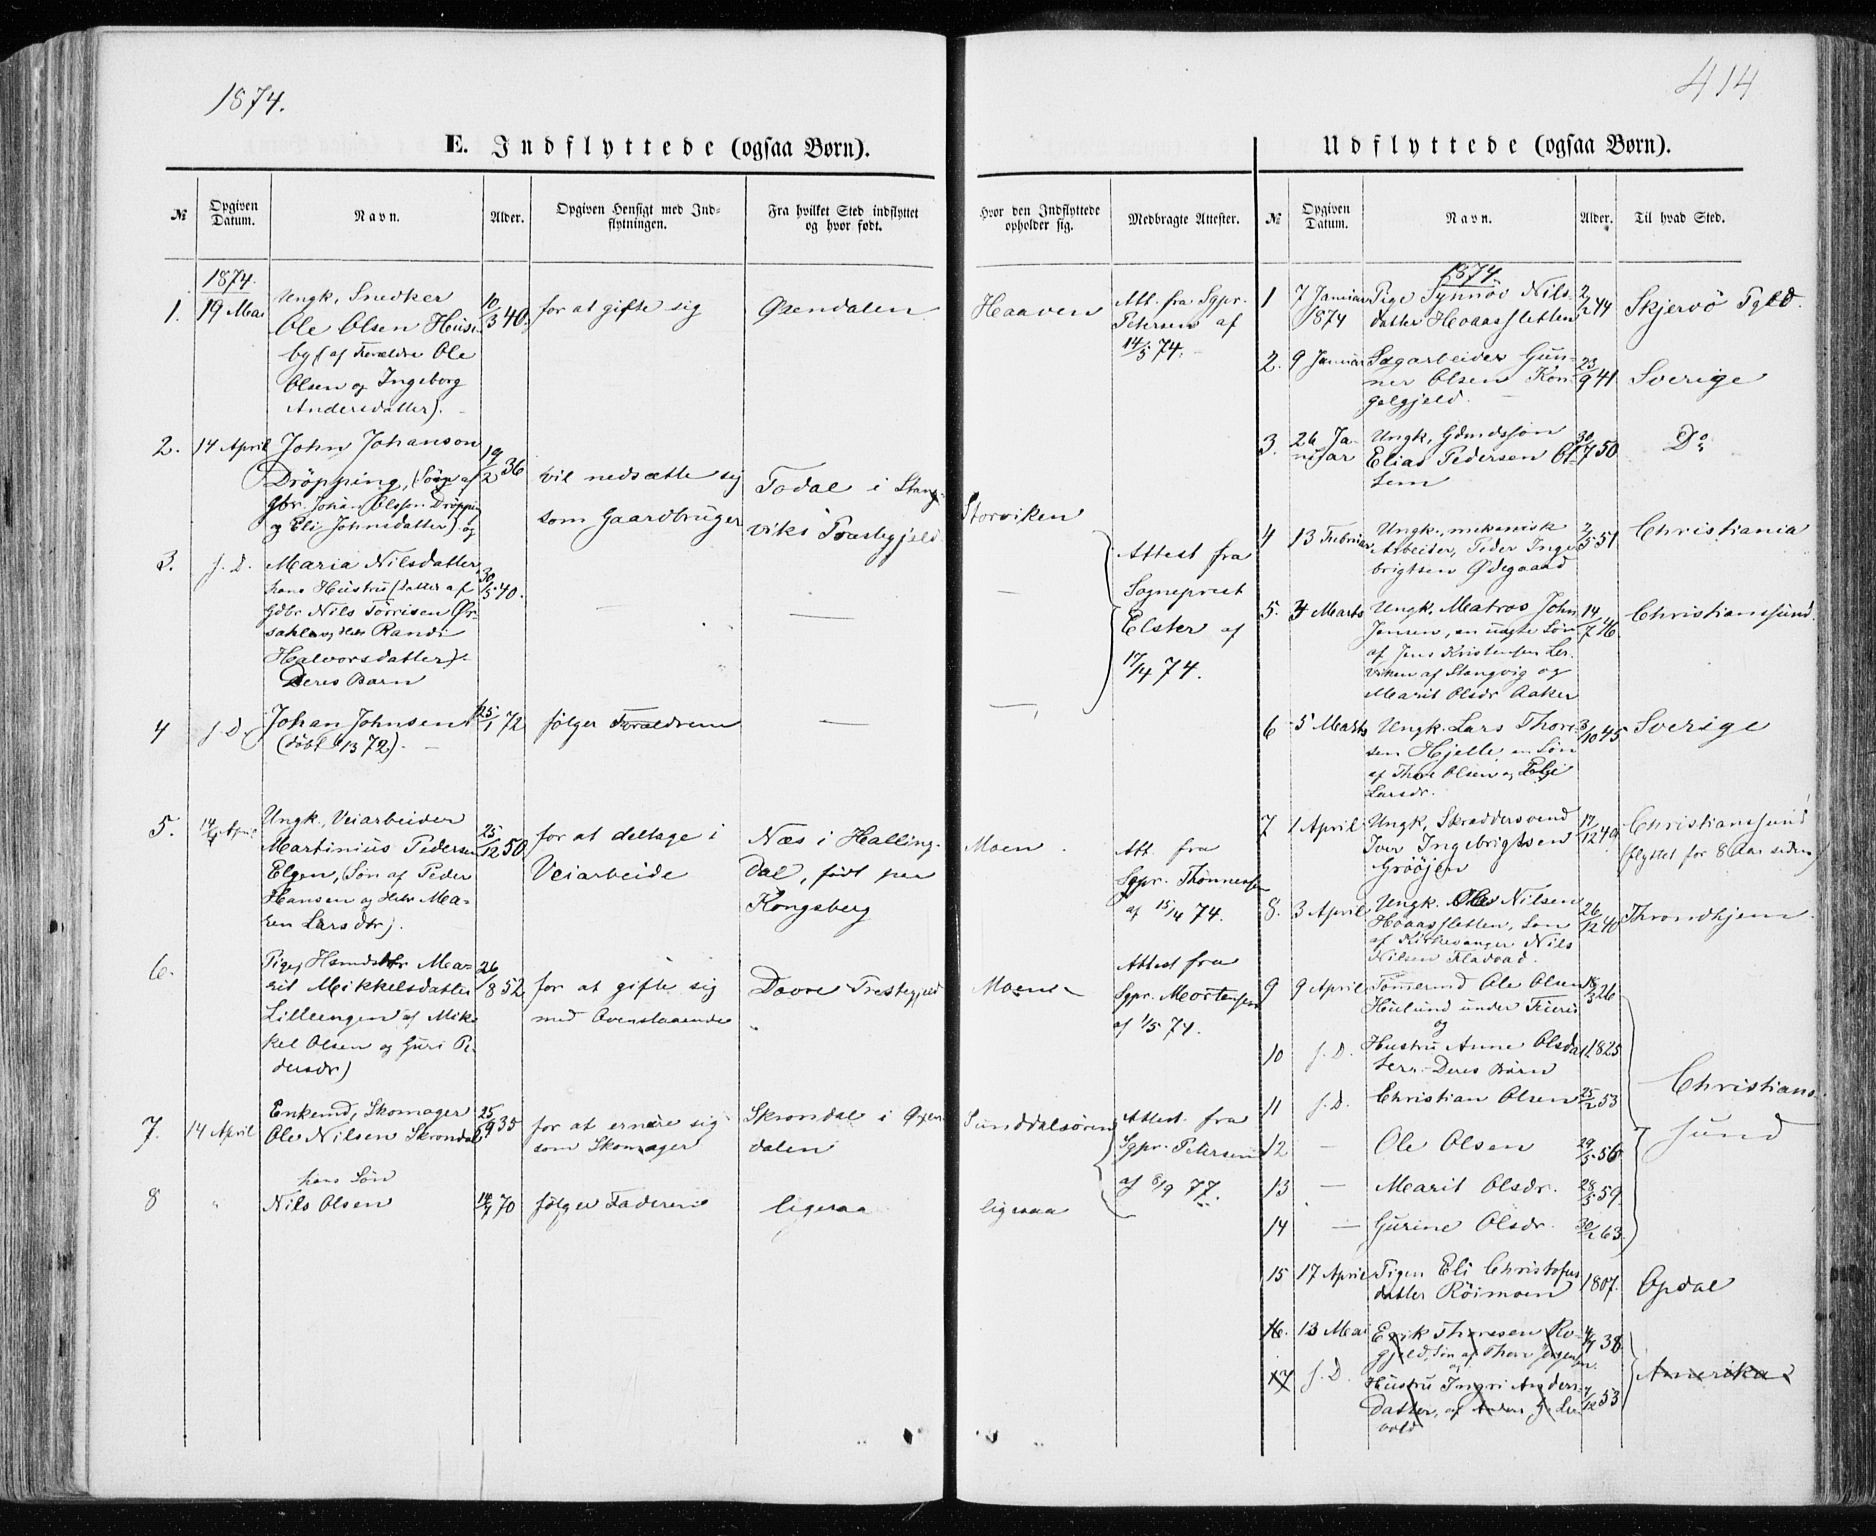 1874.
414
E. Indflyttede (ogsaa Børn).
№
Opgiven Datum.
Navn.
Alder.
Opgiven Hensigt med Ind-
flytningen.
Fra hvilket Sted indflyttet
og hvor født.
Hvor den Indflyttede
opholder sig.
Medbragte Attester.
1874.
1. 19 Mai Ungk, Snedker 10/3 40. for at gifte sig Øxendalen Haaven Att. fra Sgpr.
Ole Olsen Huse- Petersen af
by, (af Forældre Ole 14/5 74.
Olsen og Ingeborg
Andersdatter).
2. 14 April John Johanson 19/2 36 vil nedsætte sig Todal i Stang- Storviken
Dröpping, (Søn af som Gaardbruger viks Præstegjeld
Gbr. Johan Olssen Dröpping
og Eli Johnsdatter) og
3. s. D. Maria Nilsdatter 30/5 40. — — — Attest fra
hans Hustru (datter af Sogneprest
Gdbr Nils Törrisen Elster af
og Randi 17/4 74.
Halvorsdatter).
Deres Barn
4 s. D. Johan Johnsen 25/1 72 følger Forældrene — —
(döbt 72).
5. 14/4 April Ungk, Veiarbeider 25/12 50 for at deltage i Næs i Halling- Moen. Att. fra
Martinius Pedersen Veiarbeide dal, født paa Sgpr. Thönnesen
Elgen, Søn af Peder Kongsberg af 15/4 74.
Hansen og Ma-
ren Larsdtr).
6. Pige, Ma- 26/8 52 for at gifte sig Dovre Prestegjeld Moen Attest fra
rit Mikkelsdatter med Ovenstaaende Sgpr. Mortensen
Lilleengen af Mik- af 1/5 74.
kel Olsen og Guri Pe-
dersdr)
7. 14 April Enkemd, Skomager 25/9 35 for at ernære sig Skrondal i Øxen- Sunddalsøren Attest fra
Ole Nilsen Skrondal som Skomager dalen Sgpr. Petersen
hans Søn af 8/9 77.
8 " Nils Olsen 14/4 70 følger Faderen ligesaa ligesaa
Udflyttede (ogsaa Børn).
№
Opgiven
Datum.
Navn.
Alder.
Til hvad Sted.
1874.
1 7 Januar Pige Synnöv Nils- 2/2 44 Skjervö Pgld.
1874 datter Hoaassletten
2. 9 Januar Sagarbeider Gun- 23/9 41 Sverige
ner Olsen Kon-
gelgjeld.
3. 26 Ja- Ungk, Gdmdssøn 30/7 50 Do
nuar Elias Pedersen Ol-
sem
4 13 Februar Ungk. mekanisk 2/5 51 Christiania
Arbeider, Peder Inge-
brigtsen Ødegaard
5. 4 Marts Ungk. Matros John 14/7 46 Christianssund.
Jensen, en uægte Søn
af Jens Kristensen Ler-
viken af Stangvig og
Marit Olsdr Aaker
6 5 Marts Ungk. Lars Thore- 3/10 45 Sverige
sen Hjelle en Søn
af Thore Olsen og
Larsdr.
7 1 April Ungk, Skræddersvend 17/12 49 Christianssund
Iver Ingebrigtsen (flyttet for 8 Aar siden)
Grööjen
8. 3 April Ungk. Ole Nilsen 26/12 40 Throndhjem.
Hoaassletten, Søn
af Kirkesanger Nils
Nilsen Flavad.
9 9 April Tømmermd Ole Olsen 18/3 26
Huslund under
og
10 s. D. Hustru Anne Olsdat- 1825
ter. Deres Børn
11 s. D. Christian Olsen 25/2 53 Christians-
sund
12 — Ole Olsen 29/5 56
13 — Marit Olsdr. 28/5 59.
14 — Gurine Olsdr. 30/1 63.
15 17 April Pigen Eli Christofers- 1807. Opdal
datter Röimoen
16. 13 Mai Erik Thoresen Ro- 38 Amerika
gjeld, Søn af Thore
og
17 s. D. Hustru Ingri Anders- 7/12 53
datter, af Anders